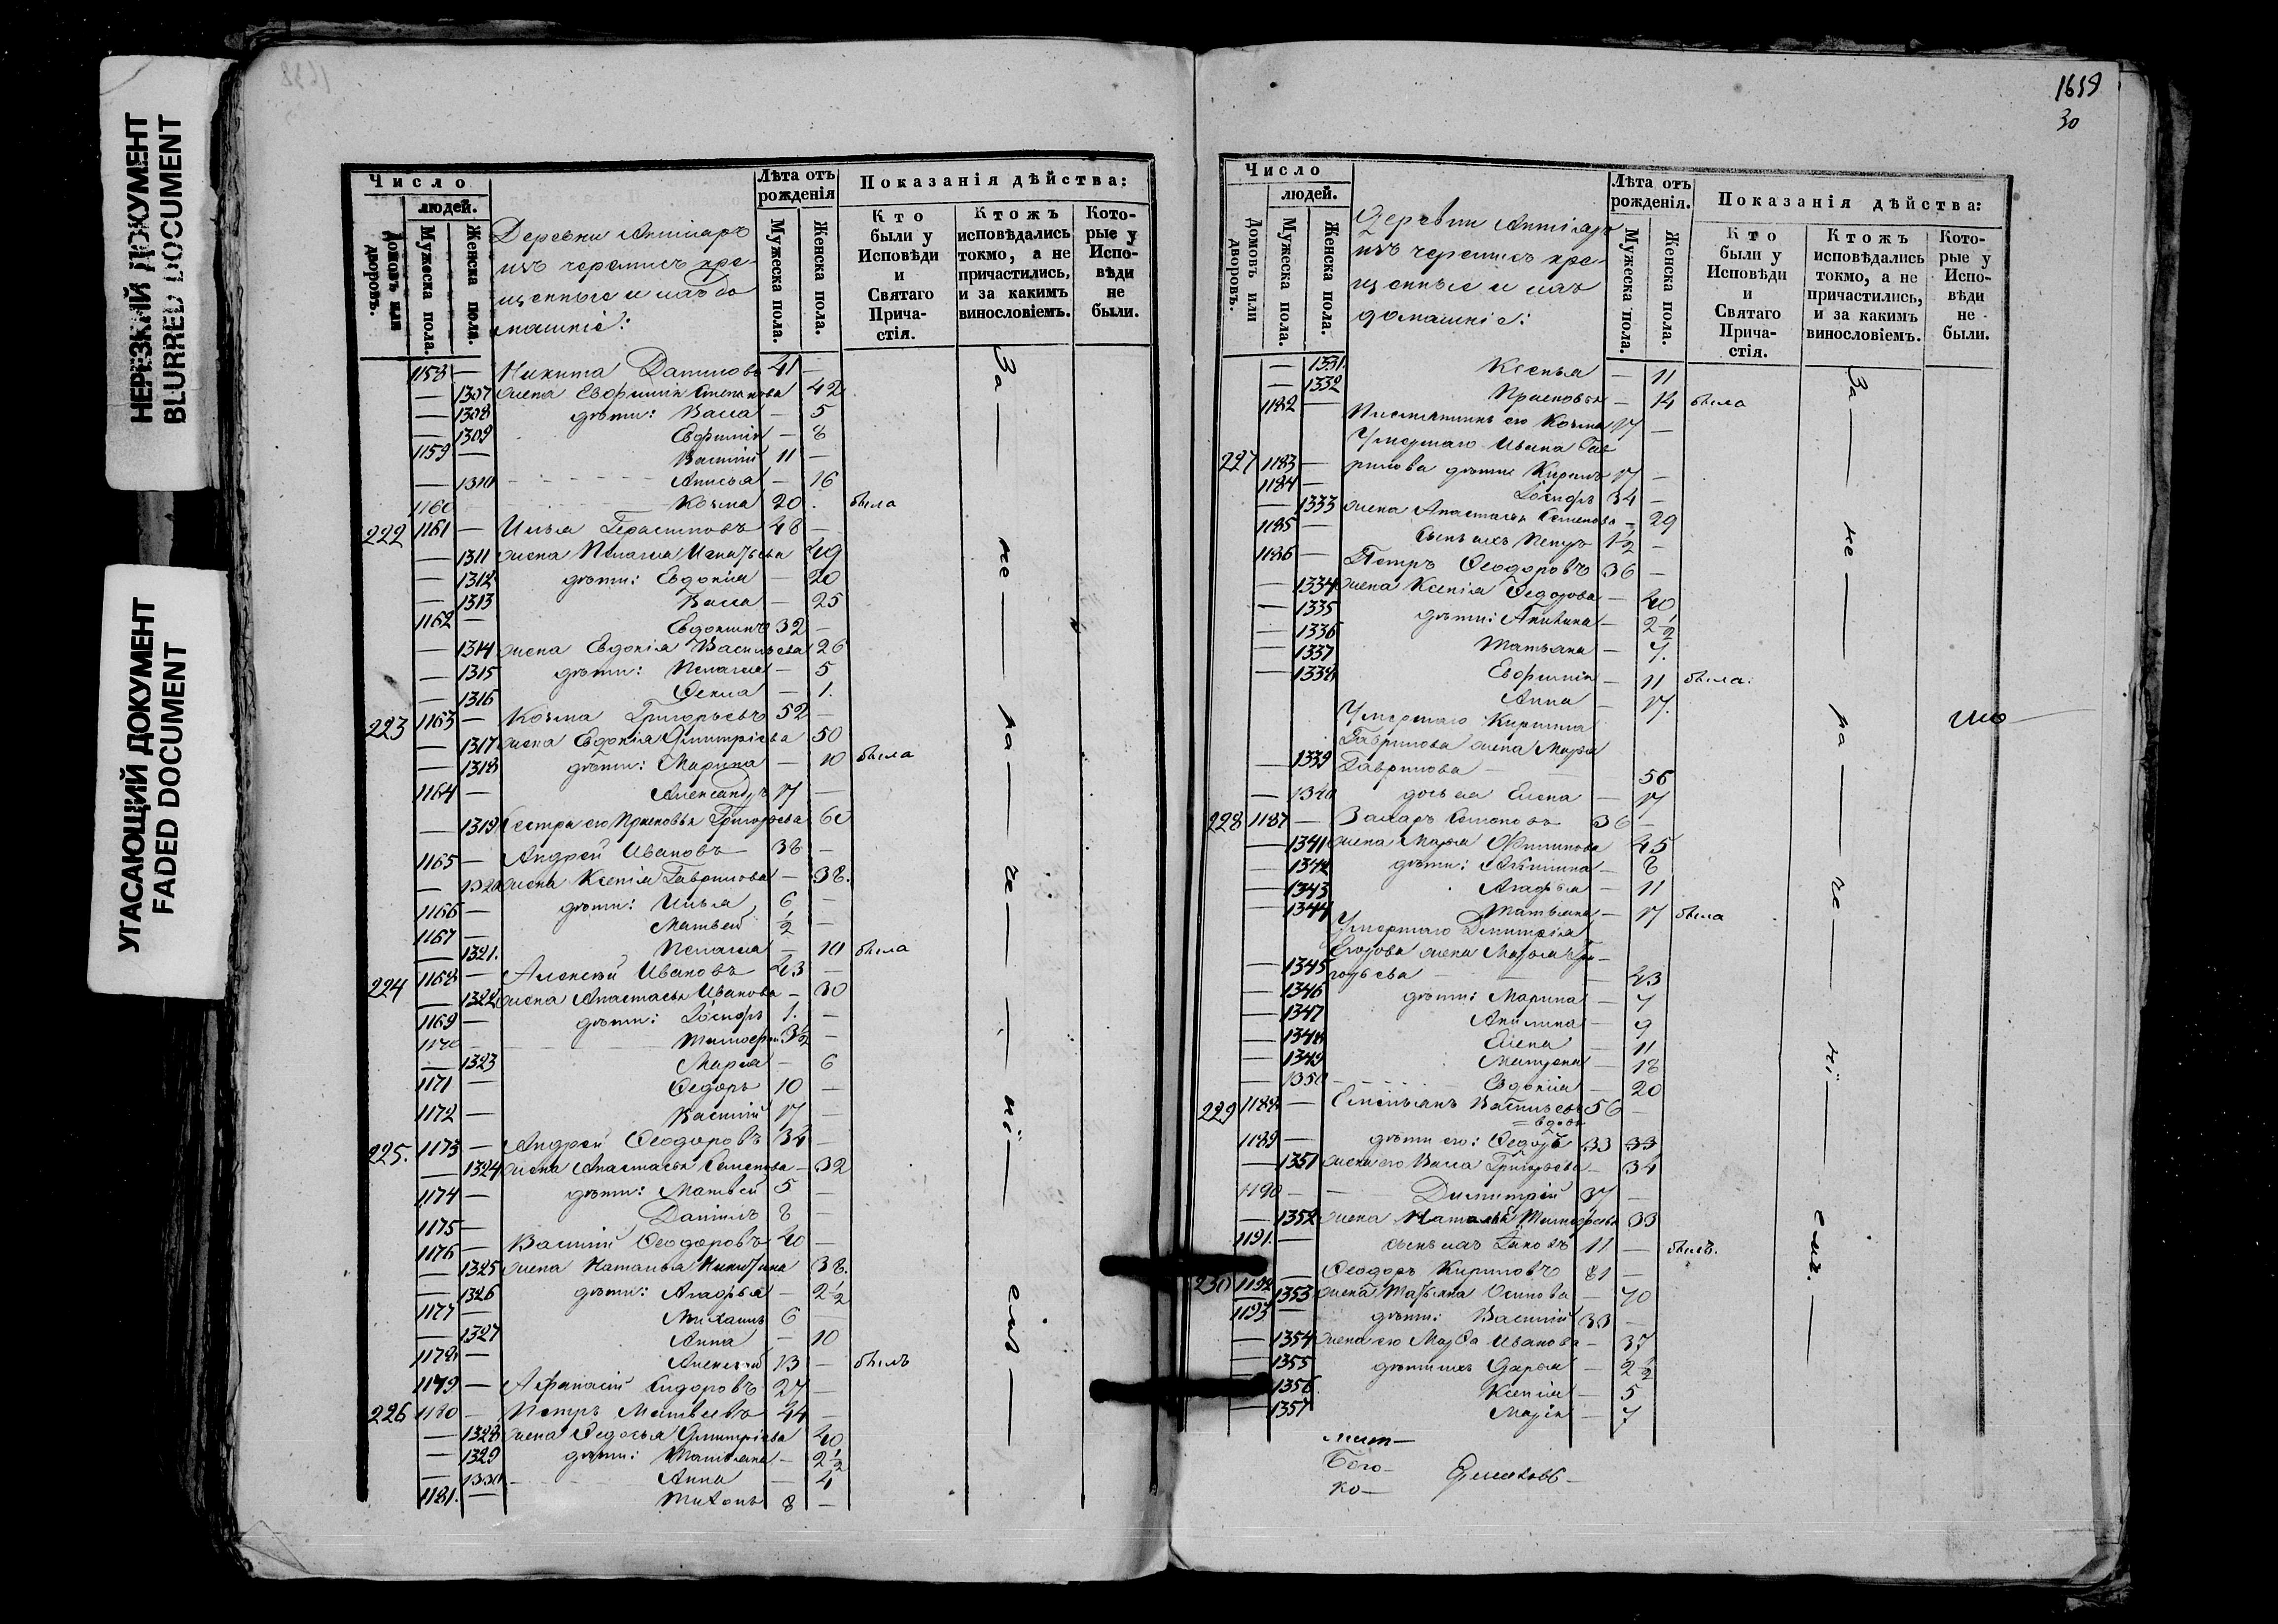 НЕРЕЗКИЙ ДОКУМЕНТ
BLURRED DOCUMENT
УГАСАЮЩИЙ ДОКУМЕНТ
FADED DOCUMENT
Число
людей.
Домовъ или дворовъ.
Мужеска пола.
Женска пола.
Деревни
изъ черемисъ кре-
щенные и ихъ до
машніе:
Лѣта отъ рожденія
Мужеска пола.
Женска пола.
Показанія дѣйства:
Кто были у Исповѣди и Святаго Прича-стія.
Ктожъ исповѣдались токмо, а не причастились, и за какимъ винословіемъ.
Кото-рые у Испо-вѣди не были.
1158 — Никита Даниловъ 41 —
— 1307 жена Евфимія Степанова 42
— 1308 дѣти: Васса — 5
— 1309 Евфимія — 8
1159 — Василій 11 —
— 1310 Анисья — 16
1160 Козма 20 была
222 1161 — Илья Герасимовъ 48 —
— 1311 жена Пелагія Игнатьева 49
— 1312 дѣти: Евдокія — 20
— 1313 Васса — 25
1162 — Евдокимъ 32 —
— 1314 жена Евдокія Васильева 26
— 1315 дѣти: Пелагія — 5
— 1316 — 1.
223 1163 — Козма Григорьевъ 52 —
— 1317 жена Евдокія Димитріева 50
— 1318 дѣти: Марина — 10 была
1164 — Александръ 17 —
— 1319 Сестра его Прасковья Григорьева 60
1165 — Андрей Ивановъ 38 —
— 1320 жена Ксенія Гаврилова — 38.
1166 — дѣти: Илья 6 —
1167 — Матвей ½ —
— 1321. Пелагія — 10 была
224 1168 — Алексѣй Ивановъ 43 —
— 1322 жена Анастасья Иванова — 30
1169 — дѣти: Іосифъ 1. —
1170 Тимофей 3½ —
— 1323 Марья — 6
1171 — Ѳедоръ 10 —
1172 — Василій 17 —
225. 1173 — Андрей Ѳеодоровъ 34 —
— 1324 жена Анастасья Семенова — 32
1174 — дѣти: Матвѣй 5 —
1175 — Даніилъ 8 —
1176 — Василій Ѳеодоровъ 40 —
— 1325 жена Наталья Никитина 38.
— 1326 дѣти: Агафья — 2½
1177 — Михаилъ 6 —
— 1327 Анна — 10
1178 — Алексѣй 13 — былъ
1179 — Афанасій Сидоровъ 27 —
226 1180 — Петръ Матвѣевъ 44 —
— 1328 жена Ѳедосья Димитріева 40
— 1329 дѣти: Татьяна — 2½
— 1330 Анна — 4
1181. — Тихонъ 8 —
За — не — ра — че — ні — емъ —
1659
30
Число
людей.
Домовъ или дворовъ.
Мужеска пола.
Женска пола.
Деревни
изъ черемисъ кре-
щенные и ихъ
домашніе:
Лѣта отъ рожденія.
Мужеска пола.
Женска пола.
Показанія дѣйства:
Кто были у Исповѣди и Святаго Прича-стія.
Ктожъ исповѣдались токмо, а не причастились, и за какимъ винословіемъ.
Кото-рые у Испо-вѣди не были.
— 1331. Ксенья — 11
— 1332 Прасковья — 14 была
1182 — Племянникъ его Козма 17 —
Умершаго Ивана Гав
227 1183 — рилова дѣти: Кирилъ 17 —
1184 — Іосифъ 34 —
— 1333 жена Анастасья Семенова — 29
1185 — сынъ ихъ Петръ 1½ —
1186 — Петръ Ѳеодоровъ 36 —
— 1334 жена Ксенія Ѳедорова — 40
— 1335 дѣти: — 2½
— 1336 Татьяна — 7.
— 1337 Евфимія — 11 была.
— 1338 Анна — 17.
Умершаго Кирилла
Гаврилова жена Марья
— 1339 Гаврилова — 56
— 1340 дочь ея Елена — 17
228 1187 — Захаръ 36 —
— 1341 жена Марья Филипова 45
— 1342 дѣти: Акилина — 8
— 1343 Агафья — 11
— 1344 Татьяна — 17 была
Умершаго Димитрія
Егорова жена Марья Гри-
— 1345 горьева — 43
— 1346 дѣти: Марина — 7
— 1347 Акилина — 9
— 1348 Елена — 11
— 1349 Матрена — 18
— 1350 Евдокія — 20
229 1188 — Емельянъ Васильевъ 56 —
вдовъ
1189 — дѣти его: Ѳедоръ 33 33
— 1351 жена его Васса Григорьева — 34
1190 — Димитрій 37 —
— 1352 жена Наталья Тимофѣева 33
1191. — сынъ ихъ Яковъ 11 — былъ.
— Ѳеодоръ Кириловъ 81 —
230 1192
1353 жена Татьяна Осипова — 70
1193 — дѣти: Василій 33 —
— 1354 жена его Марѳа Иванова — 37
— 1355 дѣти ихъ Дарья — 2½
1356 Ксенія — 5
— 1357 Марія — 7
За — не — ра — че — ні — емъ. —